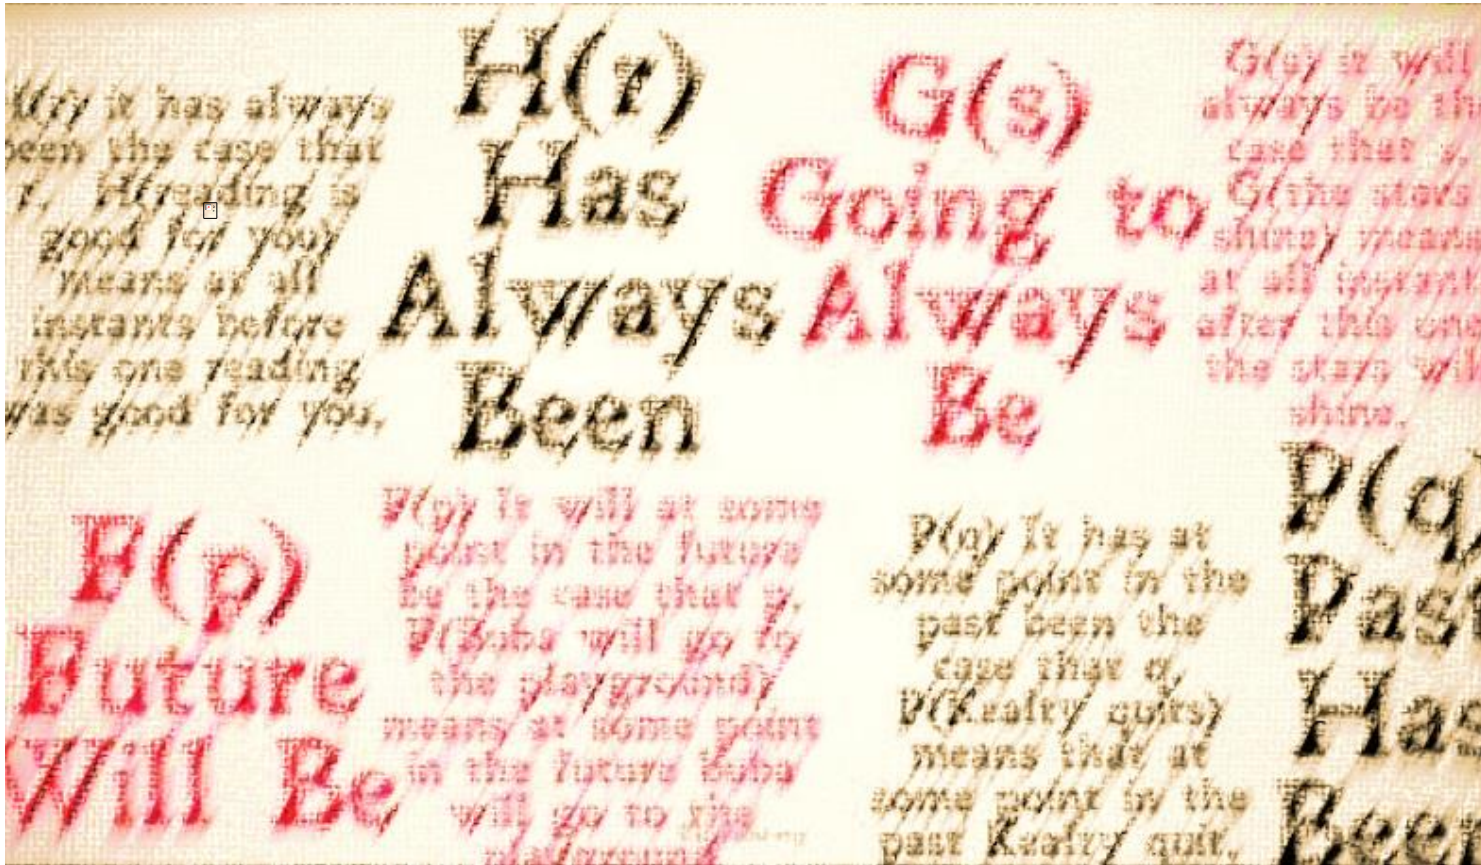 H(r) it has always
been the case that
r. H(reading is
good for you)
means at all
instants before
this one reading
was good for you.
H(r)
Has
Always
Been
G(s)
Going to
Always
Be
G(s) it will
always be the
case that s.
G(the stars
shine) means
at all instants
after this one
the stars will
shine.
F(p)
Future
Will Be
F(p) It will at some
point in the future
be the case that p.
F(Bubs will go to
the playground)
means at some point
in the future Bubs
will go to the
playground
P(q) It has at
some point in the
past been the
case that q.
P(Kealty quits)
means that at
some point in the
past Kealty quit.
P(q)
Past
Has
Been